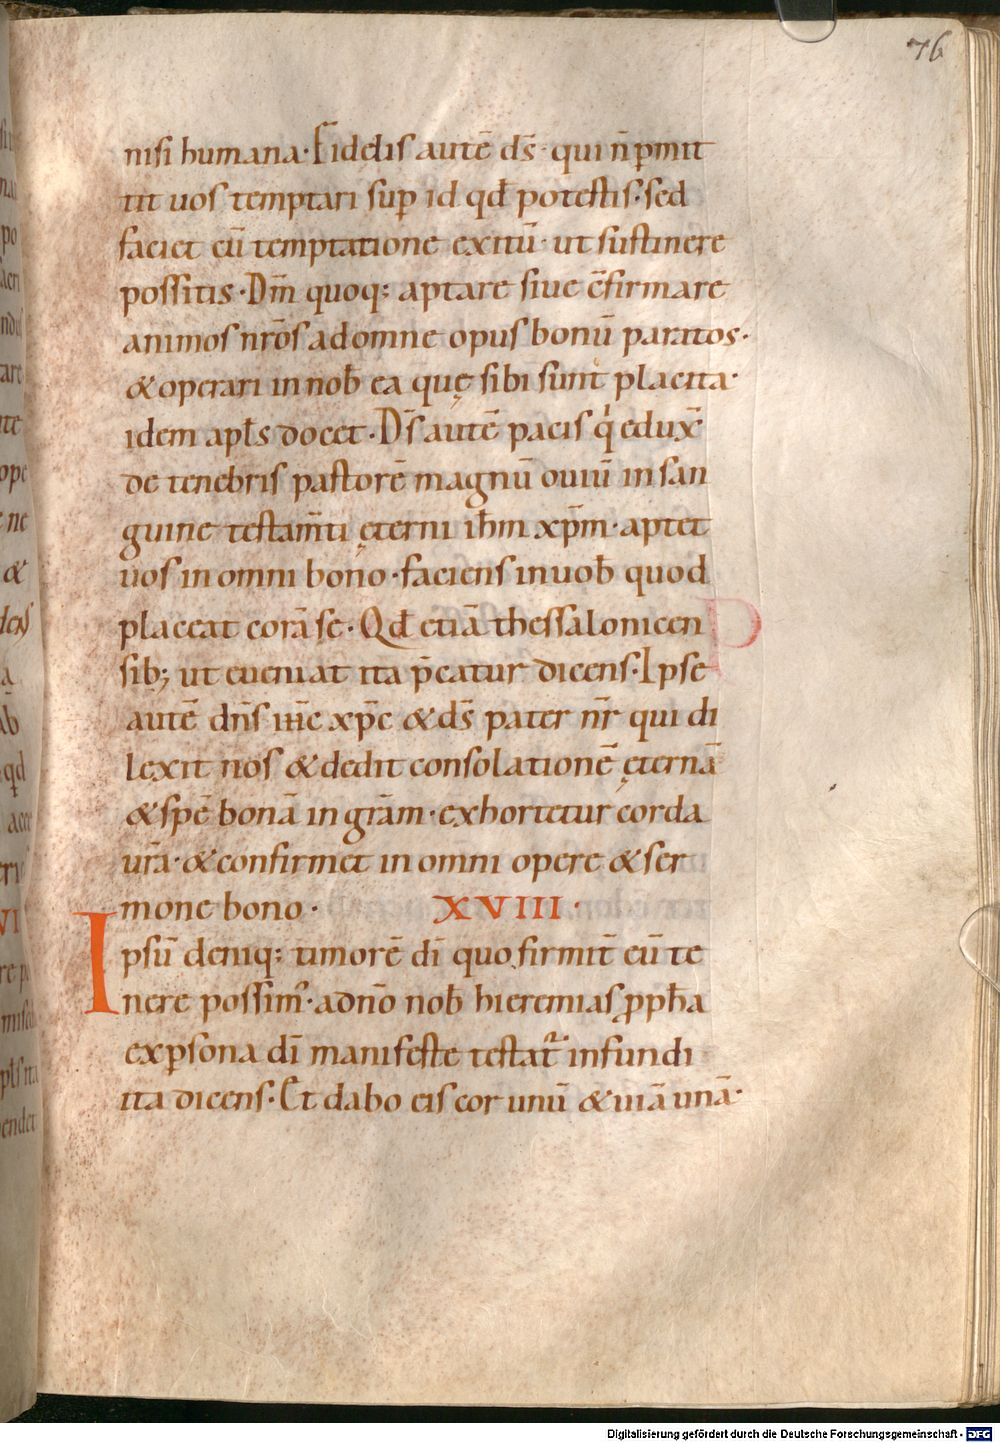 76
nisi humana· Fidelis autē ds̄· qui n̄ ꝑmit
tit uos temptari suꝑ id qđ potestis· sed
faciet cū temptatione exitū· ut sustinere
possitis· Dm̄ quoq; aptare siue c̄firmare
animos nr̄os ad omne opus bonū paratos·
& operari in nob̄ ea quę sibi sunt placita·
idem apl̄s docet· Ds̄ autē pacis qͥ eduxͭ
de tenebris pastorē magnū ouiū in san
guine testam̄ti ęterni ih̄m xp̄m· aptet
uos in omni bono· faciens in uob̄ quod
placeat corā se· Qđ etiā thessalonicen
sib; ut eueniat ita p̄catur dicens· Ipse
autē dn̄s ih̄c xp̄c & ds̄ pater nr̄ qui di
lexit nos & dedit consolationē ęternā
& spē bonā in gr̄am· exhortetur corda
ur̄a· & confirmet in omni opere & ser
mone bono· XVIII·
Ipsū deniq; timorē dī quo firmit̄ eū te
nere possimꝰ· a dn̄o nob̄ hieremias ꝓph̄a
ex ꝑsona dī manifeste testat᷑ infundi
ita dicens· Et dabo eis cor unū & uiā unā·
Digitalisierung gefördert durch die Deutsche Forschungsgemeinschaft - DFG